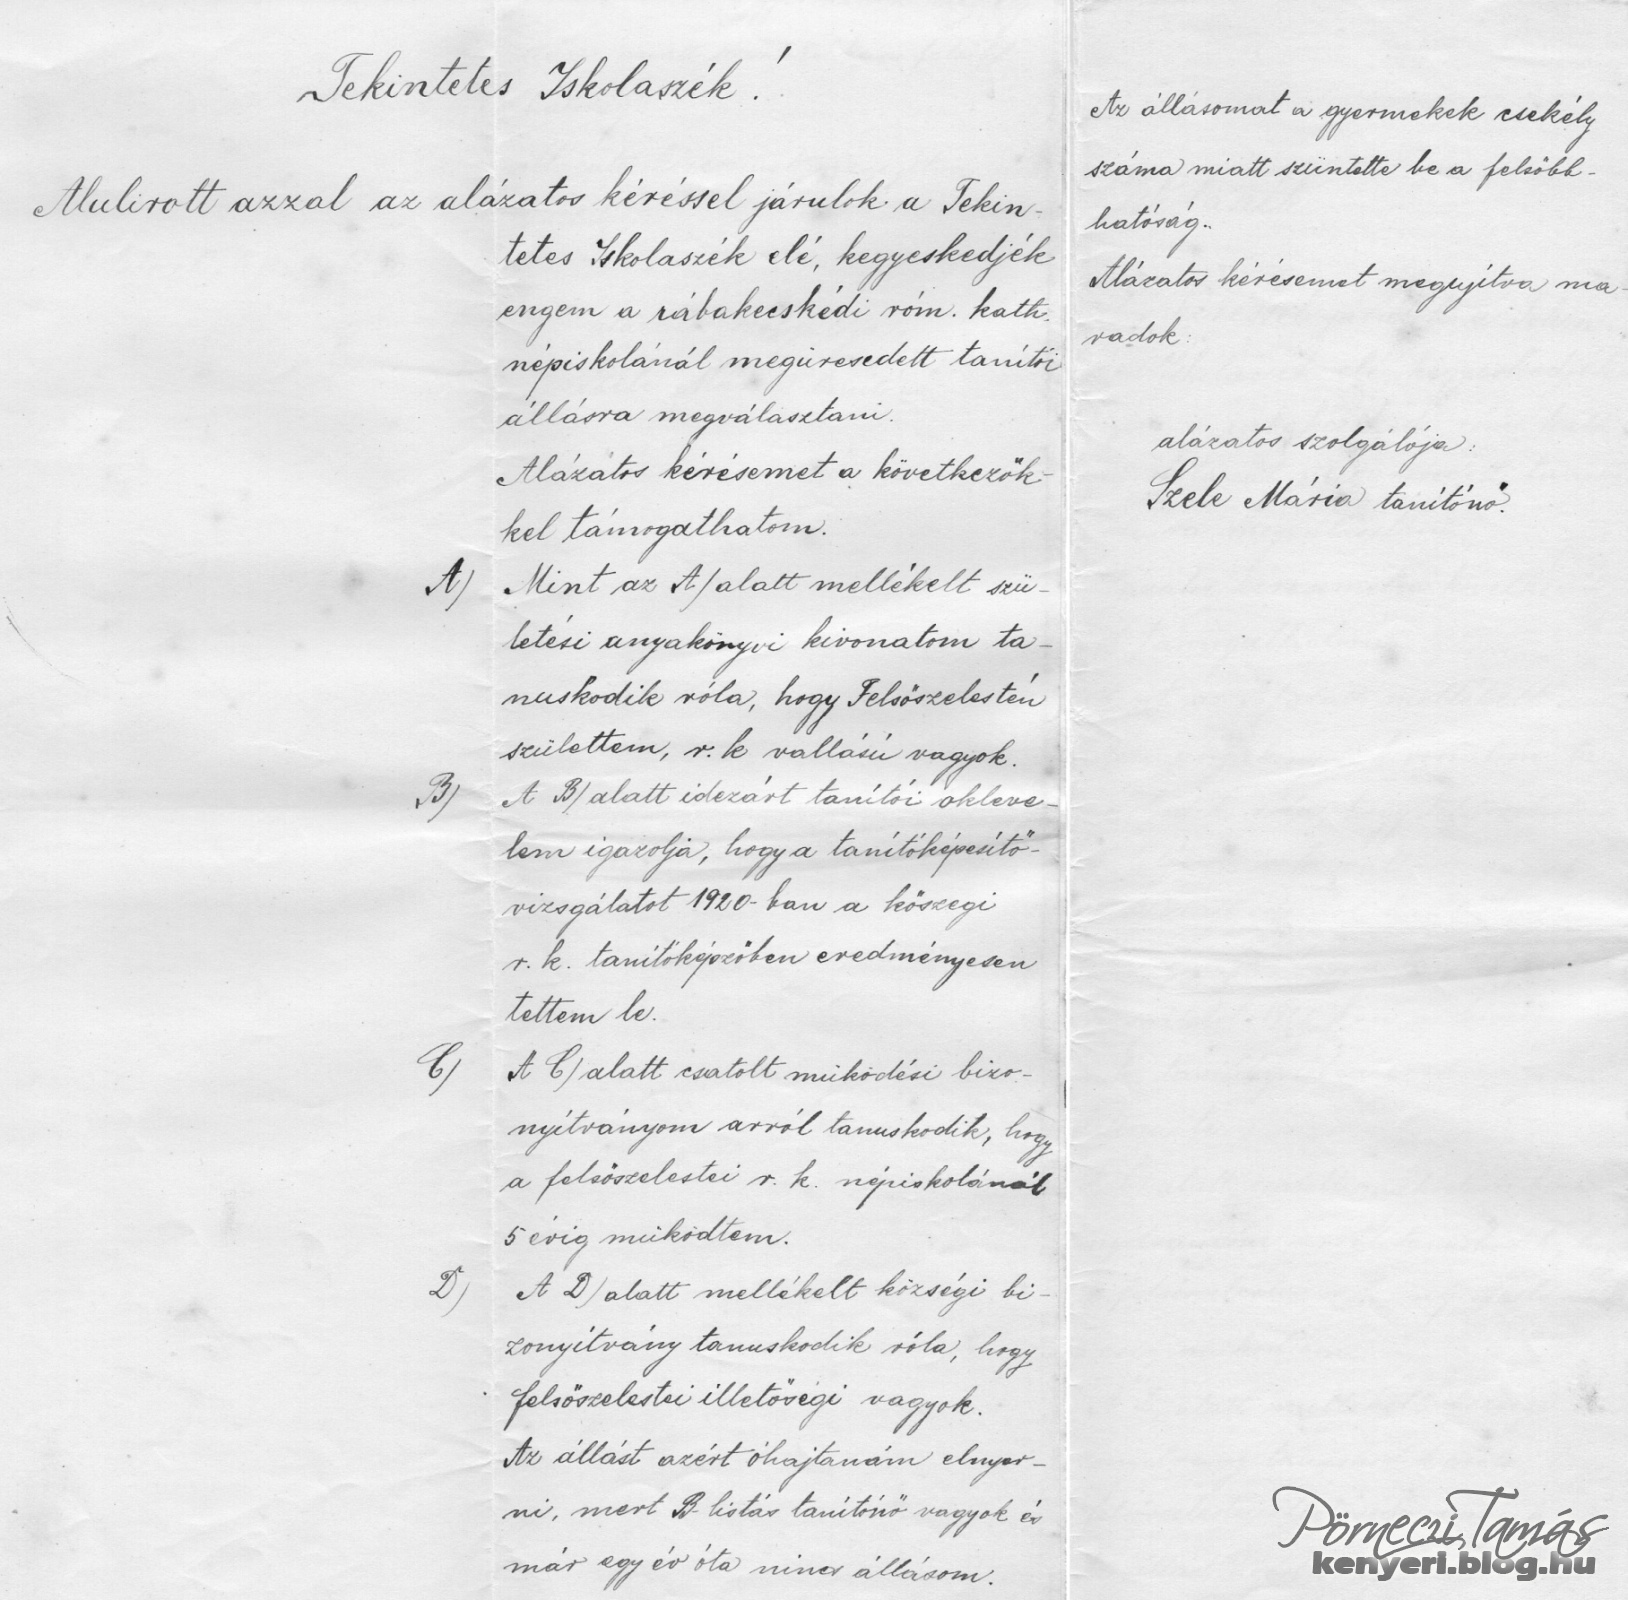 Tekintetes Iskolaszék!
Alulirott azzal az alázatos kéréssel járulok a Tekin-
tetes Iskolaszék elé, kegyeskedjék
engem a rábakecskédi róm. kath.
népiskolánál megüresedett tanítói
állásra megválasztani.
Alázatos kérésemet a következők-
kel támogathatom.
A) Mint az A/ alatt mellékelt szü-
letési anyakönyvi kivonatom ta-
nuskodik róla, hogy Felsőszelestén
születtem, r. k vallású vagyok.
B) A B/ alatt idezárt tanítói okleve-
lem igazolja, hogy a tanítóképesítő-
vizsgálatot 1920-ban a kőszegi
r. k. tanítóképzőben eredményesen
tettem le.
C) A C/ alatt csatolt müködési bizo-
nyítványom arról tanuskodik, hogy
a felsőszelestei r. k. népiskolánál
5 évig müködtem.
D) A D/ alatt mellékelt községi bi-
zonyítvány tanuskodik róla, hogy
felsőszelestei illetőségi vagyok.
Az állást azért óhajtanám elnyer-
ni, mert B-listás tanítónő vagyok és
már egy év óta nincs állásom.
Az állásomat a gyermekek csekély
száma miatt szüntette be a felsőbb-
hatóság.
Alázatos kérésemet megujítva ma-
radok:
alázatos szolgálója:
Szele Mária tanítónő.
Pörneczi Tamás
kenyeri.blog.hu